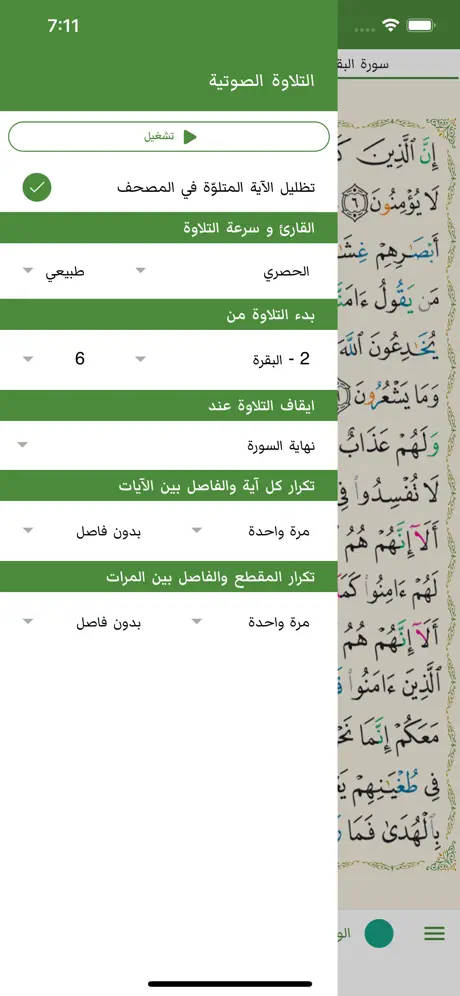 7:11
التلاوة الصوتية
تشغيل
تظليل الآية المتلوّة في المصحف
القارئ و سرعة التلاوة
الحصري
طبيعي
بدء التلاوة من
2 - البقرة
6
ايقاف التلاوة عند
نهاية السورة
تكرار كل آية والفاصل بين الآيات
مرة واحدة
بدون فاصل
تكرار المقطع والفاصل بين المرات
مرة واحدة
بدون فاصل
سورة
إِنَّ ٱلَّذِينَ
لَا يُؤْمِنُونَ ٦
أَبْصَـٰرِهِمْ
مَن يَقُولُ
يُخَـٰدِعُونَ ٱللَّهَ
وَمَا يَشْعُرُونَ
وَلَهُمْ عَذَابٌ
لَا تُفْسِدُوا۟ فِى
أَلَآ إِنَّهُمْ هُمُ
لَهُمْ ءَامِنُوا۟
أَلَآ إِنَّهُمْ هُمُ
ٱلَّذِينَ ءَامَنُوا۟
مَعَكُمْ إِنَّمَا
فِى طُغْيَـٰنِهِمْ
بِٱلْهُدَىٰ فَمَا